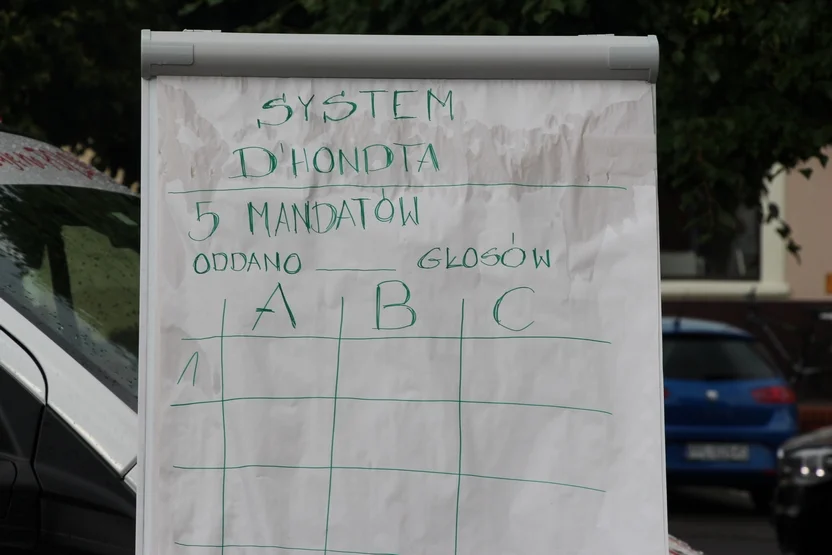 SYSTEM
D'HONDTA
5 MANDATÓW
ODDANO ______ GŁOSÓW
A B C
1